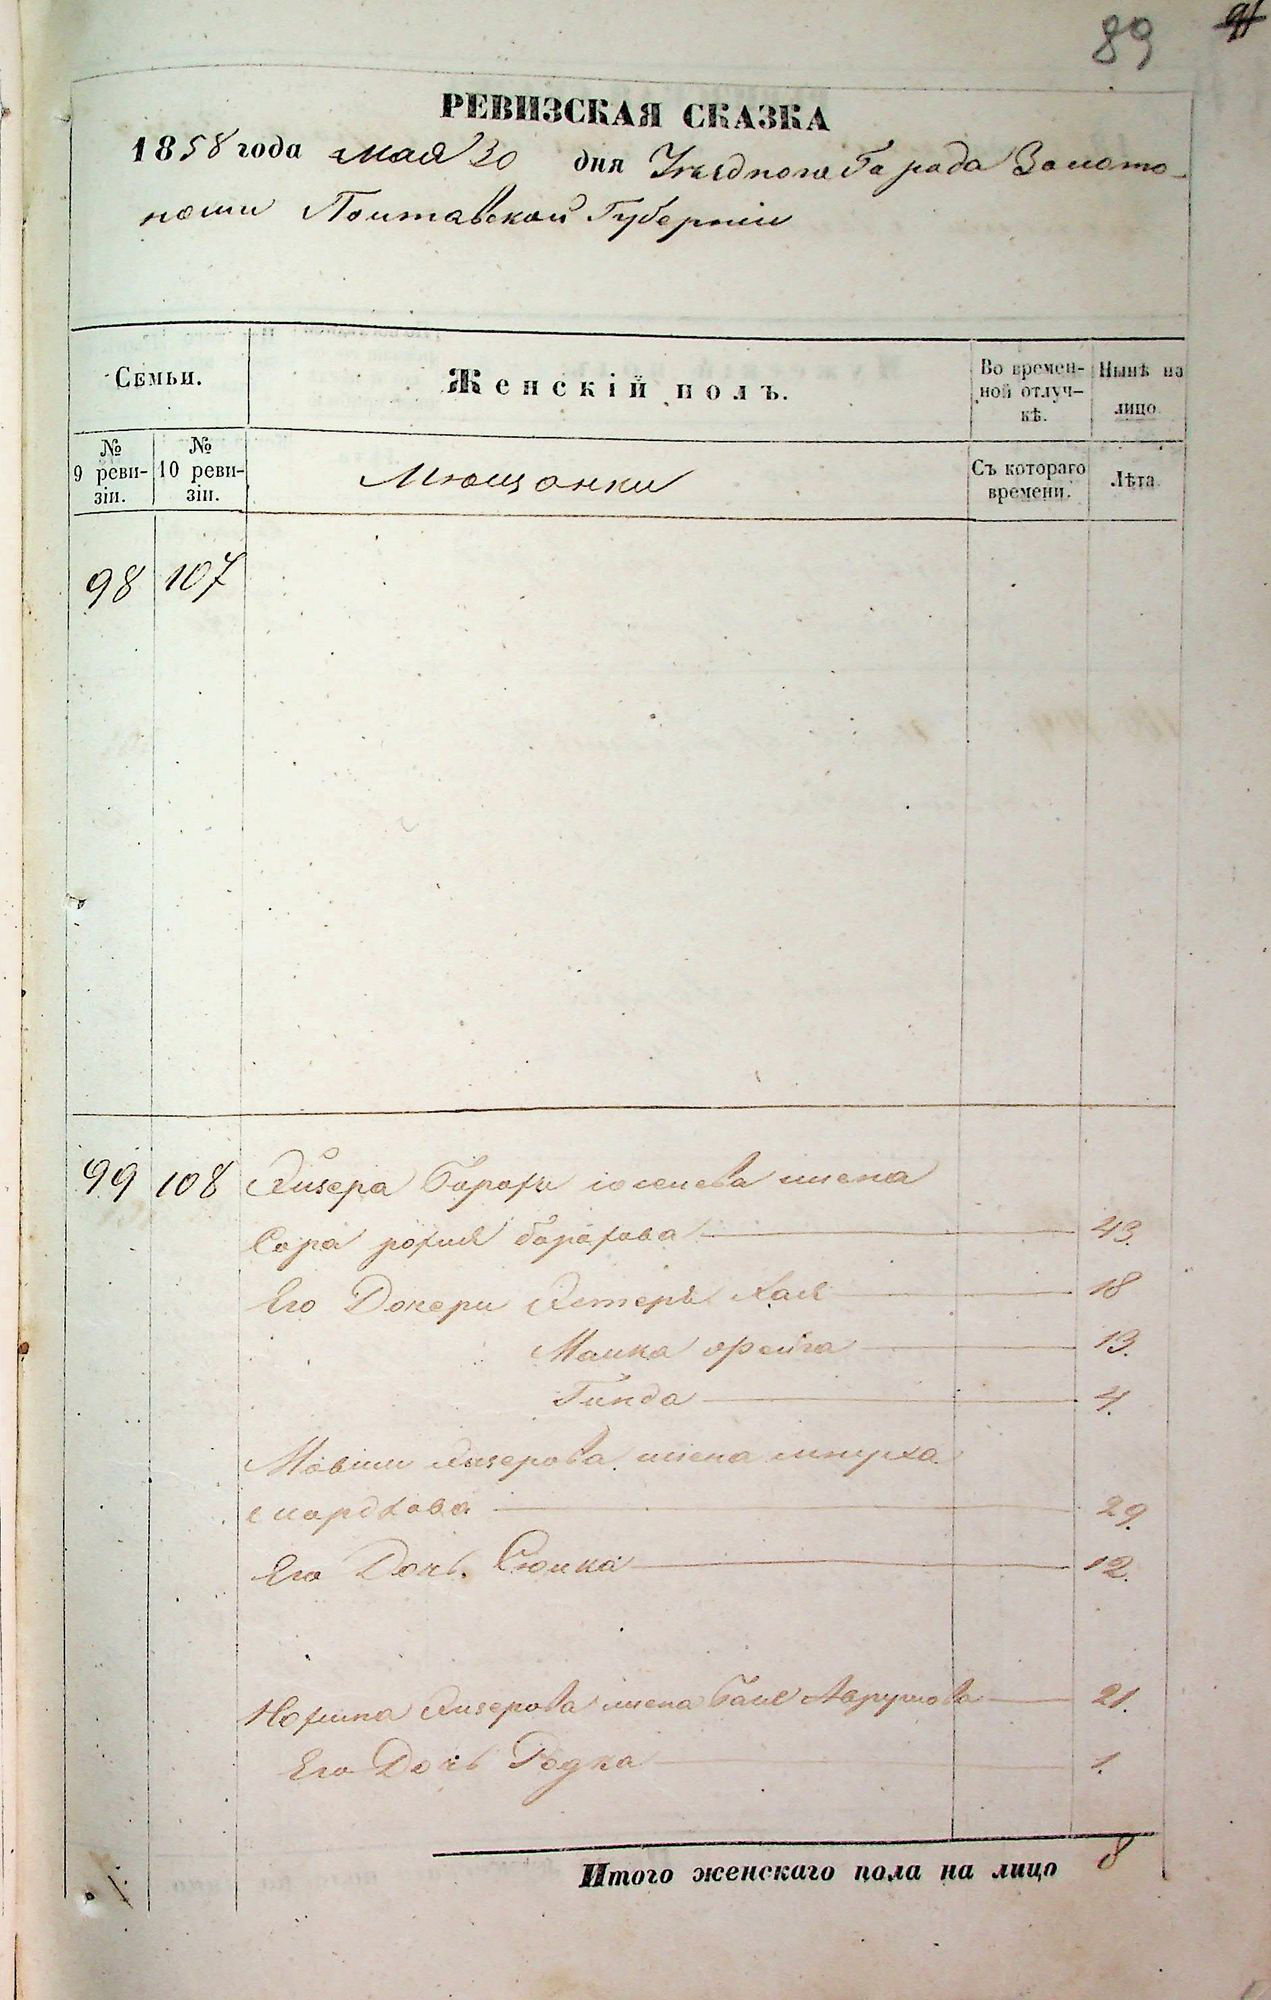 89
91
РЕВИЗСКАЯ СКАЗКА
1858 года мая 30 дня Уезднога Города Золото-
ноши Полтавской Губерніи
Семьи.
Женскій полъ.
Во времен-
ной отлуч-
кѣ.
Нынѣ на
лицо
№
9 реви-
зіи.
№
10 реви-
зіи.
Мющанки
Съ котораго
времени.
Лѣта
98 107
99 108 Лизера Борохъ жена
Сора рохля борохова 43.
Его Дочери Естеръ Хая 18
Малка фейга 13.
Гинда 4.
Мовши Лизерова жена
мордхова 29.
Его Дочь. Сюпка 12.
Нохима Лизерова жена Баля 21.
Его Дочь 1.
Итого женскаго пола на лицо 8